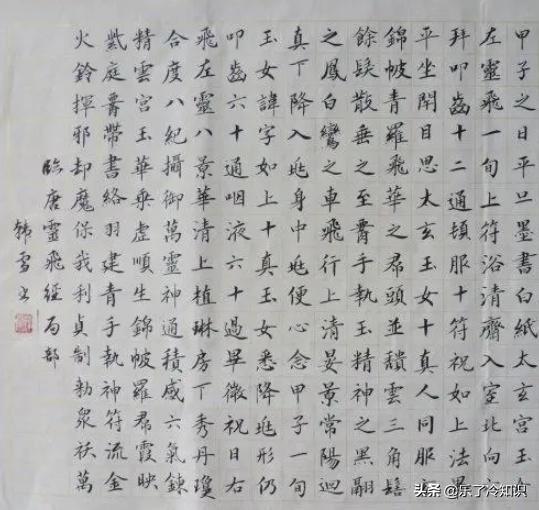 甲子之日平旦墨書白紙太玄宮玉女
左靈飛一旬上符浴清齋入室北向六
拜叩齒十二通頓服十符祝如上法畢
平坐閉目思太玄玉女十真人同服玄
錦帔青羅飛華之帬頭並頹雲三角髻
餘髮散垂之至腰手執玉精神之黑翮
之鳳白鸞之車飛行上清晏景常陽迴
真下降入兆身中兆便心念甲子一旬
玉女諱字如上十真玉女悉降兆形仍
叩齒六十通咽液六十過畢微祝曰右
飛左靈八景華清上植琳房下秀丹瓊
合度八紀攝御萬靈神通積感六氣鍊
精雲宮玉華乘虛順生錦帔羅帬霞映
紫庭腰帶書絡羽建青手執神符流金
火鈴揮邪却魔保我利貞制勑眾祅萬
臨唐靈飛經局部
韓雪書
头条 @乐了冷知识